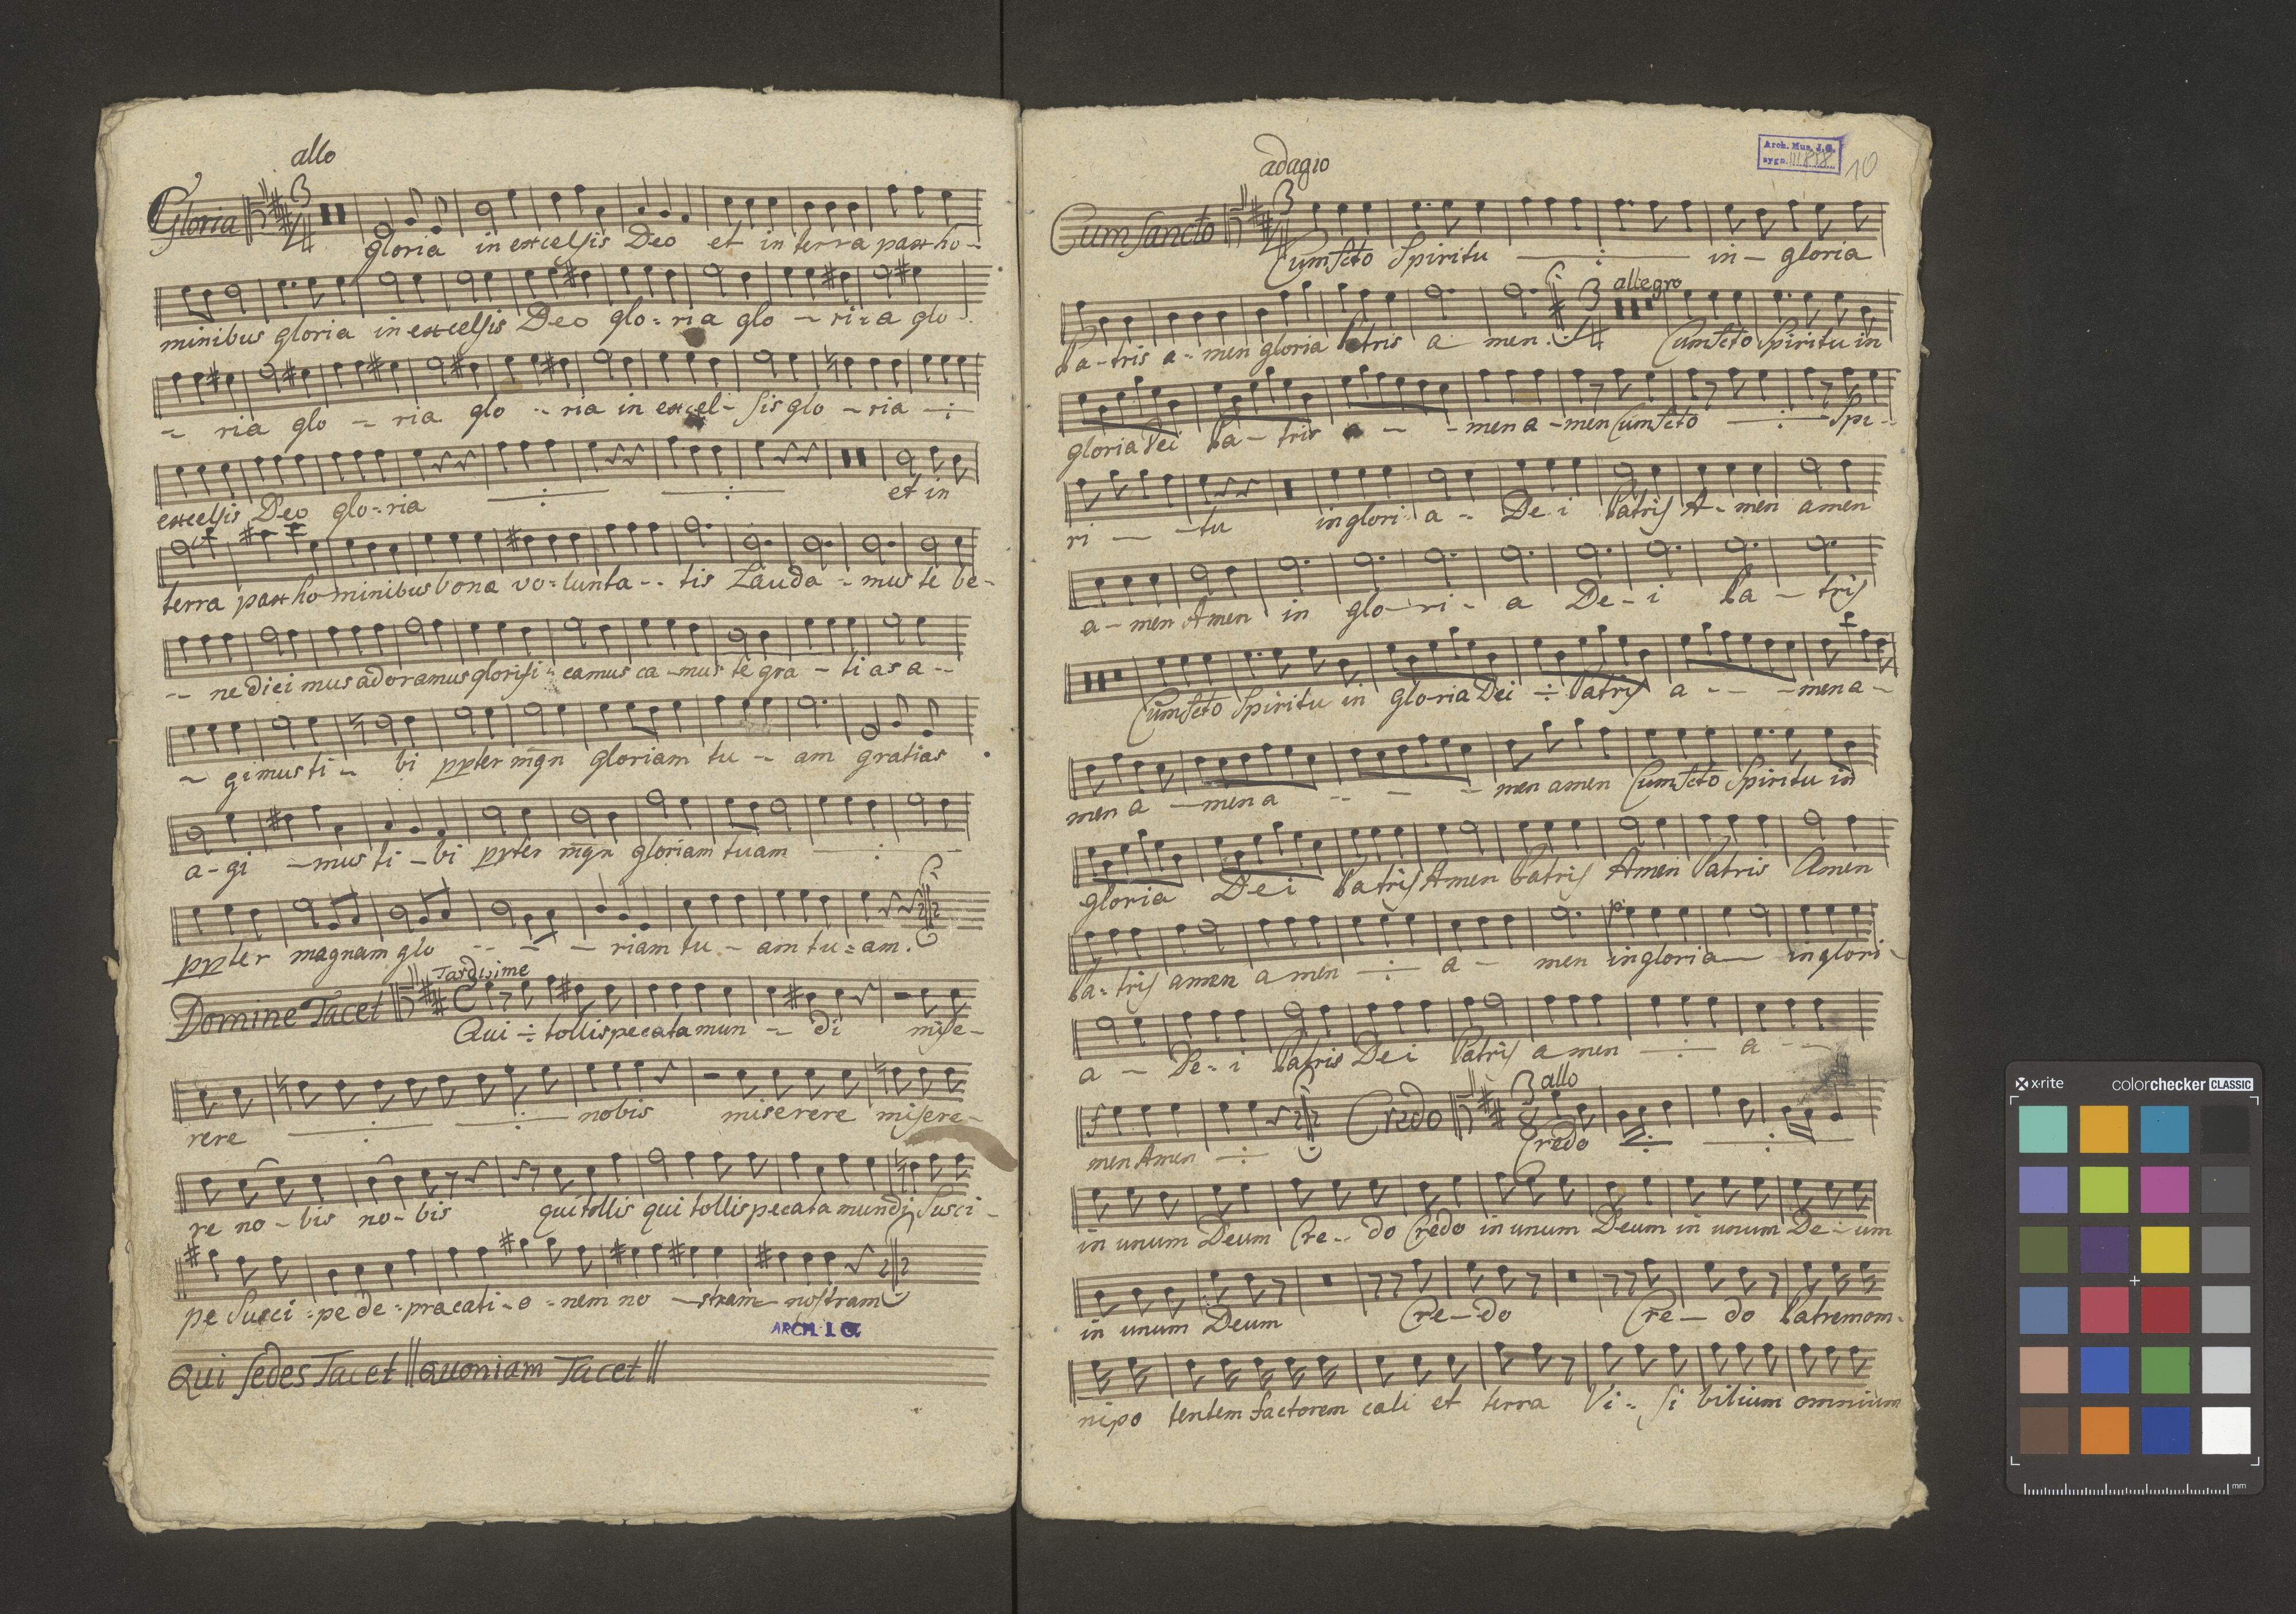 allo
Gloria 3/4 gloria in excelsis Deo et in terra pax ho-
minibus gloria in excelsis Deo glo=ria glo - ri=a glo
- ria glo - ria glo - ria in excel- sis glo - ria -:-
excelsis Deo glo=ria -:- -:- et in
terra pax hominibus bona vo=lunta -- tis Lauda - mus te be-
-- nedici mus adoramus glorifi=camus ca-mus te gra - ti as a --
- gimus ti - bi ppter mgn gloriam tu - am gratias
a-gi - mus ti - bi ppter mgn gloriam tuam -:-
ppter magnam glo -- - - riam tu - am tu=am.
Domine Tacet Tardissime C Qui -:- tollis pecata mun - di mise-
rere -:- -:- nobis miserere misere-
re no - bis no-bis qui tollis qui tollis pecata mundi Susci-
pe Susci=pe de=precati-o-nem no - stram nostram
ARCH. I a
Qui sedes Tacet || Quoniam Tacet ||
Arch. Mus. J.G.
sygn. III 858
10
adagio
Cum sancto 3/4 Cum Scto Spiritu -:- in - gloria
Pa-tris a-men gloria Patris a men. 3/4 allegro Cum Scto Spiritu in
gloria Dei Pa-tris a - - men a-men Cum Scto -:- Spi-
ri - - tu in glori-a - De-i Patris A-men amen
a-men Amen in glo-ri-a De-i Pa-tris
Cum Scto Spiritu in glo-ria Dei -:- Patris a -- - men a-
men a - men a -- - - men amen Cum Scto Spiritu in
gloria Dei Patris Amen Patris Amen Patris Amen
Pa=tris amen amen -:- a - men p: in gloria - in glori-
a - De-i Patris Dei Patris amen -:- a --
f men Amen -:- Credo 3/8 allo Credo -:- -:-
in unum Deum Cre--do Credo in unum Deum in unum De-um
in unum Deum Cre-do Cre-do Patrem om-
nipo tentem factorem cali et terra Vi-si bilium omnium
x-rite colorchecker CLASSIC
mm